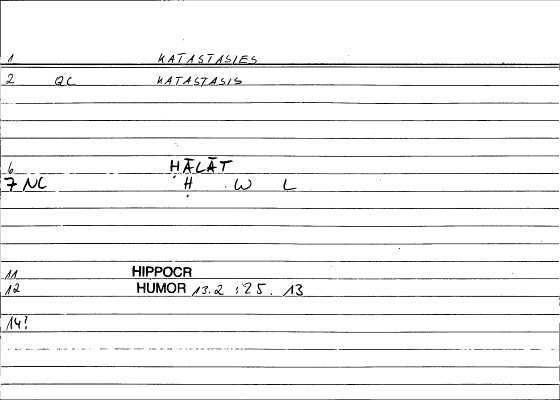 1 KATASTASIES
2 QC KATASTASIS
6 ḤĀLĀT
7 NC Ḥ . W L
11 HIPPOCR
12 HUMOR 13.2 : 25. 13
14!